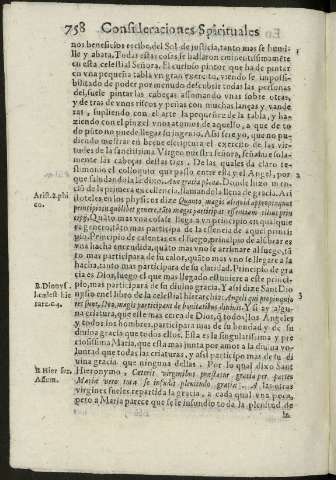 758 Consideraciones Spirituales
nos beneficios recibe del Sol de justicia, tanto mas se humi-
lle y abata. Todas estas cosas se hallaron eminentissimamẽte
en esta celestial Señora. El curioso pintor que ha de pintar
en vna pequeña tabla vn gran exercito, viendo se imposi-
bilitado de poder por menudo descubrir todas las personas
del, suele pintar las cabeças assomando vnas sobre otras,
y de tras de vnos riscos y peñas con muchas lanças y vande
ras, supliendo con el arte la pequeñez de la tabla, y ha-
ziendo con el pinzel vnos atomos de aquello, a que de to
do pũto no puede llegar su ingenio. Assi será yo, que no pu-
diendo mostrar en breue escriptura el exercito de las vir-
tudes de la sanctissima Virgen nuestra señora, señalare sola-
mente las cabeças destas tres. De las quales da claro te-
stimonio el colloquio que passo entre ella y el Angel, por
que saludandola le dixo, Aue gratia plena. Donde hizo men-
ció de la primera excelencia, llamandola llena de gracia. Ari
Arist. 2. phi
stoteles en los physicos dize Quanto magis aliquid appropinquat
co.
principio in quolibet genere, tãto magis participat essentiam illius prin
cipij. Quãto mas vna cosa se llega a vn principio en qualquie
ra genero, tãto mas participa de la essencia de aquel princi-
pio. Principio de calentar es el fuego, principio de alũbrar es
vna hacha encendida, quãto mas vno se arrimare al fuego, tã
to mas participara de su calor, quãto mas vno se llegare a la
hacha, tanto mas participara de su claridad. Principio de gra
cia es Dios, luego el que mas llegado estuuiere a este princi-
pio, mas participara de su diuina gracia. Y assi dize Sant Dio
B. Dionys.
nysio en el libro de la celestial hierarchia: Angeli quo propinquio
de celest hie
res sunt Deo, magis participant de bonitatibus diuinis. Y si ay algu-
rar. c. 4.
na criatura, que esse mas cerca de Dios, q̃ todos los Angeles
y todos los hombres, participara mas de su bondad y de su
diuina gracia que todos ellos. Esta es la singularissima y pre
ciosissima Maria, que esta mas junta por amor a la diuina vo-
luntad que todas las criaturas, y assi participo mas de su di
uina gracia que ninguna dellas. Por lo qual dixo Sant
B. Hier ser.
Hieronymo, Cæteris virginibus præstatur gratia per partes
Assum.
Mariæ vero tota se infudit plenitudo gratiæ. A las otras
virgines fueles repartida la gracia, a cada qual vna poca,
pero a Maria parece que se le infundio toda la plenitud de
la